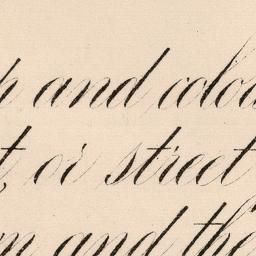 p and colou
t, or street
m and the